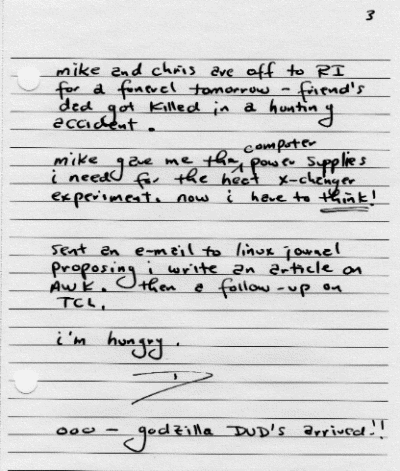 3
mike and chris are off to RI
for a funeral tomorrow - friend's
dad got killed in a hunting
accident.
mike gave me the computer power supplies
i need for the heat x-changer
experiment. now i have to think!
sent an e-mail to linux journal
proposing i write an article on
AWK. then a follow-up on
TCL.
i'm hungry.
ooo - godzilla DVD's arrived!!